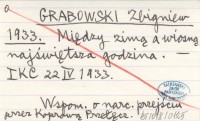 GRABOWSKI Zbigniew
1933. Między zimą a wiosną
najświętsza godzina. —
IKC 22 IV 1933.
Wspom. o narc. przejściu
przez Koprową Przełęcz.